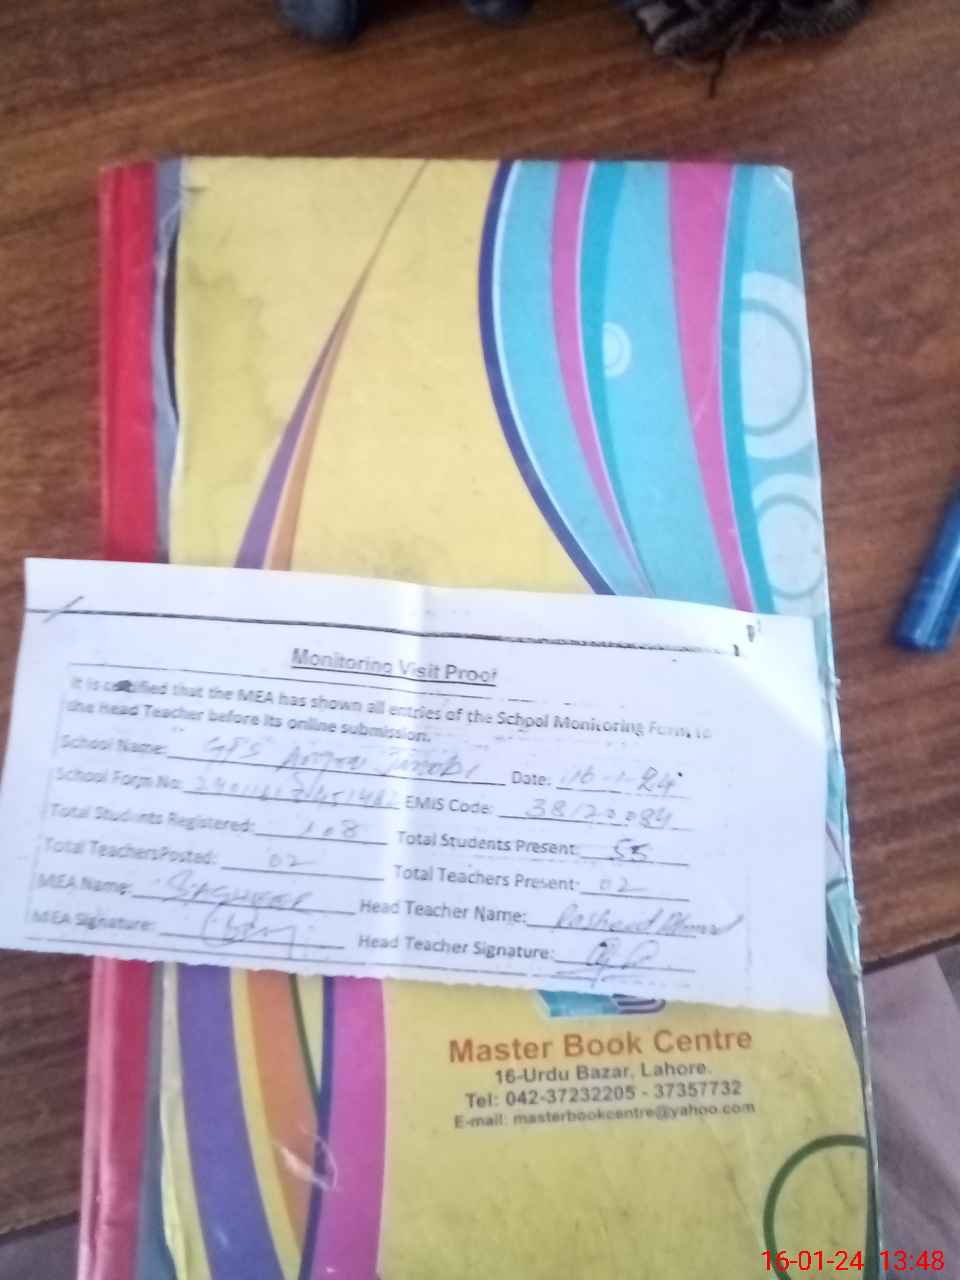 Monitoring Visit Proof
It is certified that the MEA has shown all entries of the School Monitoring Form to
the Head Teacher before its online submission.
School Name: GPS Date: 16-1-24
School Form No: EMIS Code: 38120084
Total Students Registered: 108 Total Students Present: 55
Total Teachers Posted: 02 Total Teachers Present: 02
MEA Name: Head Teacher Name: Rasheed Ahmad
MEA Signature: Head Teacher Signature:
Master Book Centre
16-Urdu Bazar, Lahore.
Tel: 042-37232205 - 37357732
E-mail: masterbookcentre@yahoo.com
16-01-24 13:48